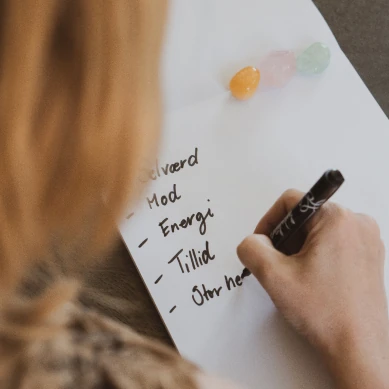 elværd
- Mod
- Energi
- Tillid
- Stor he